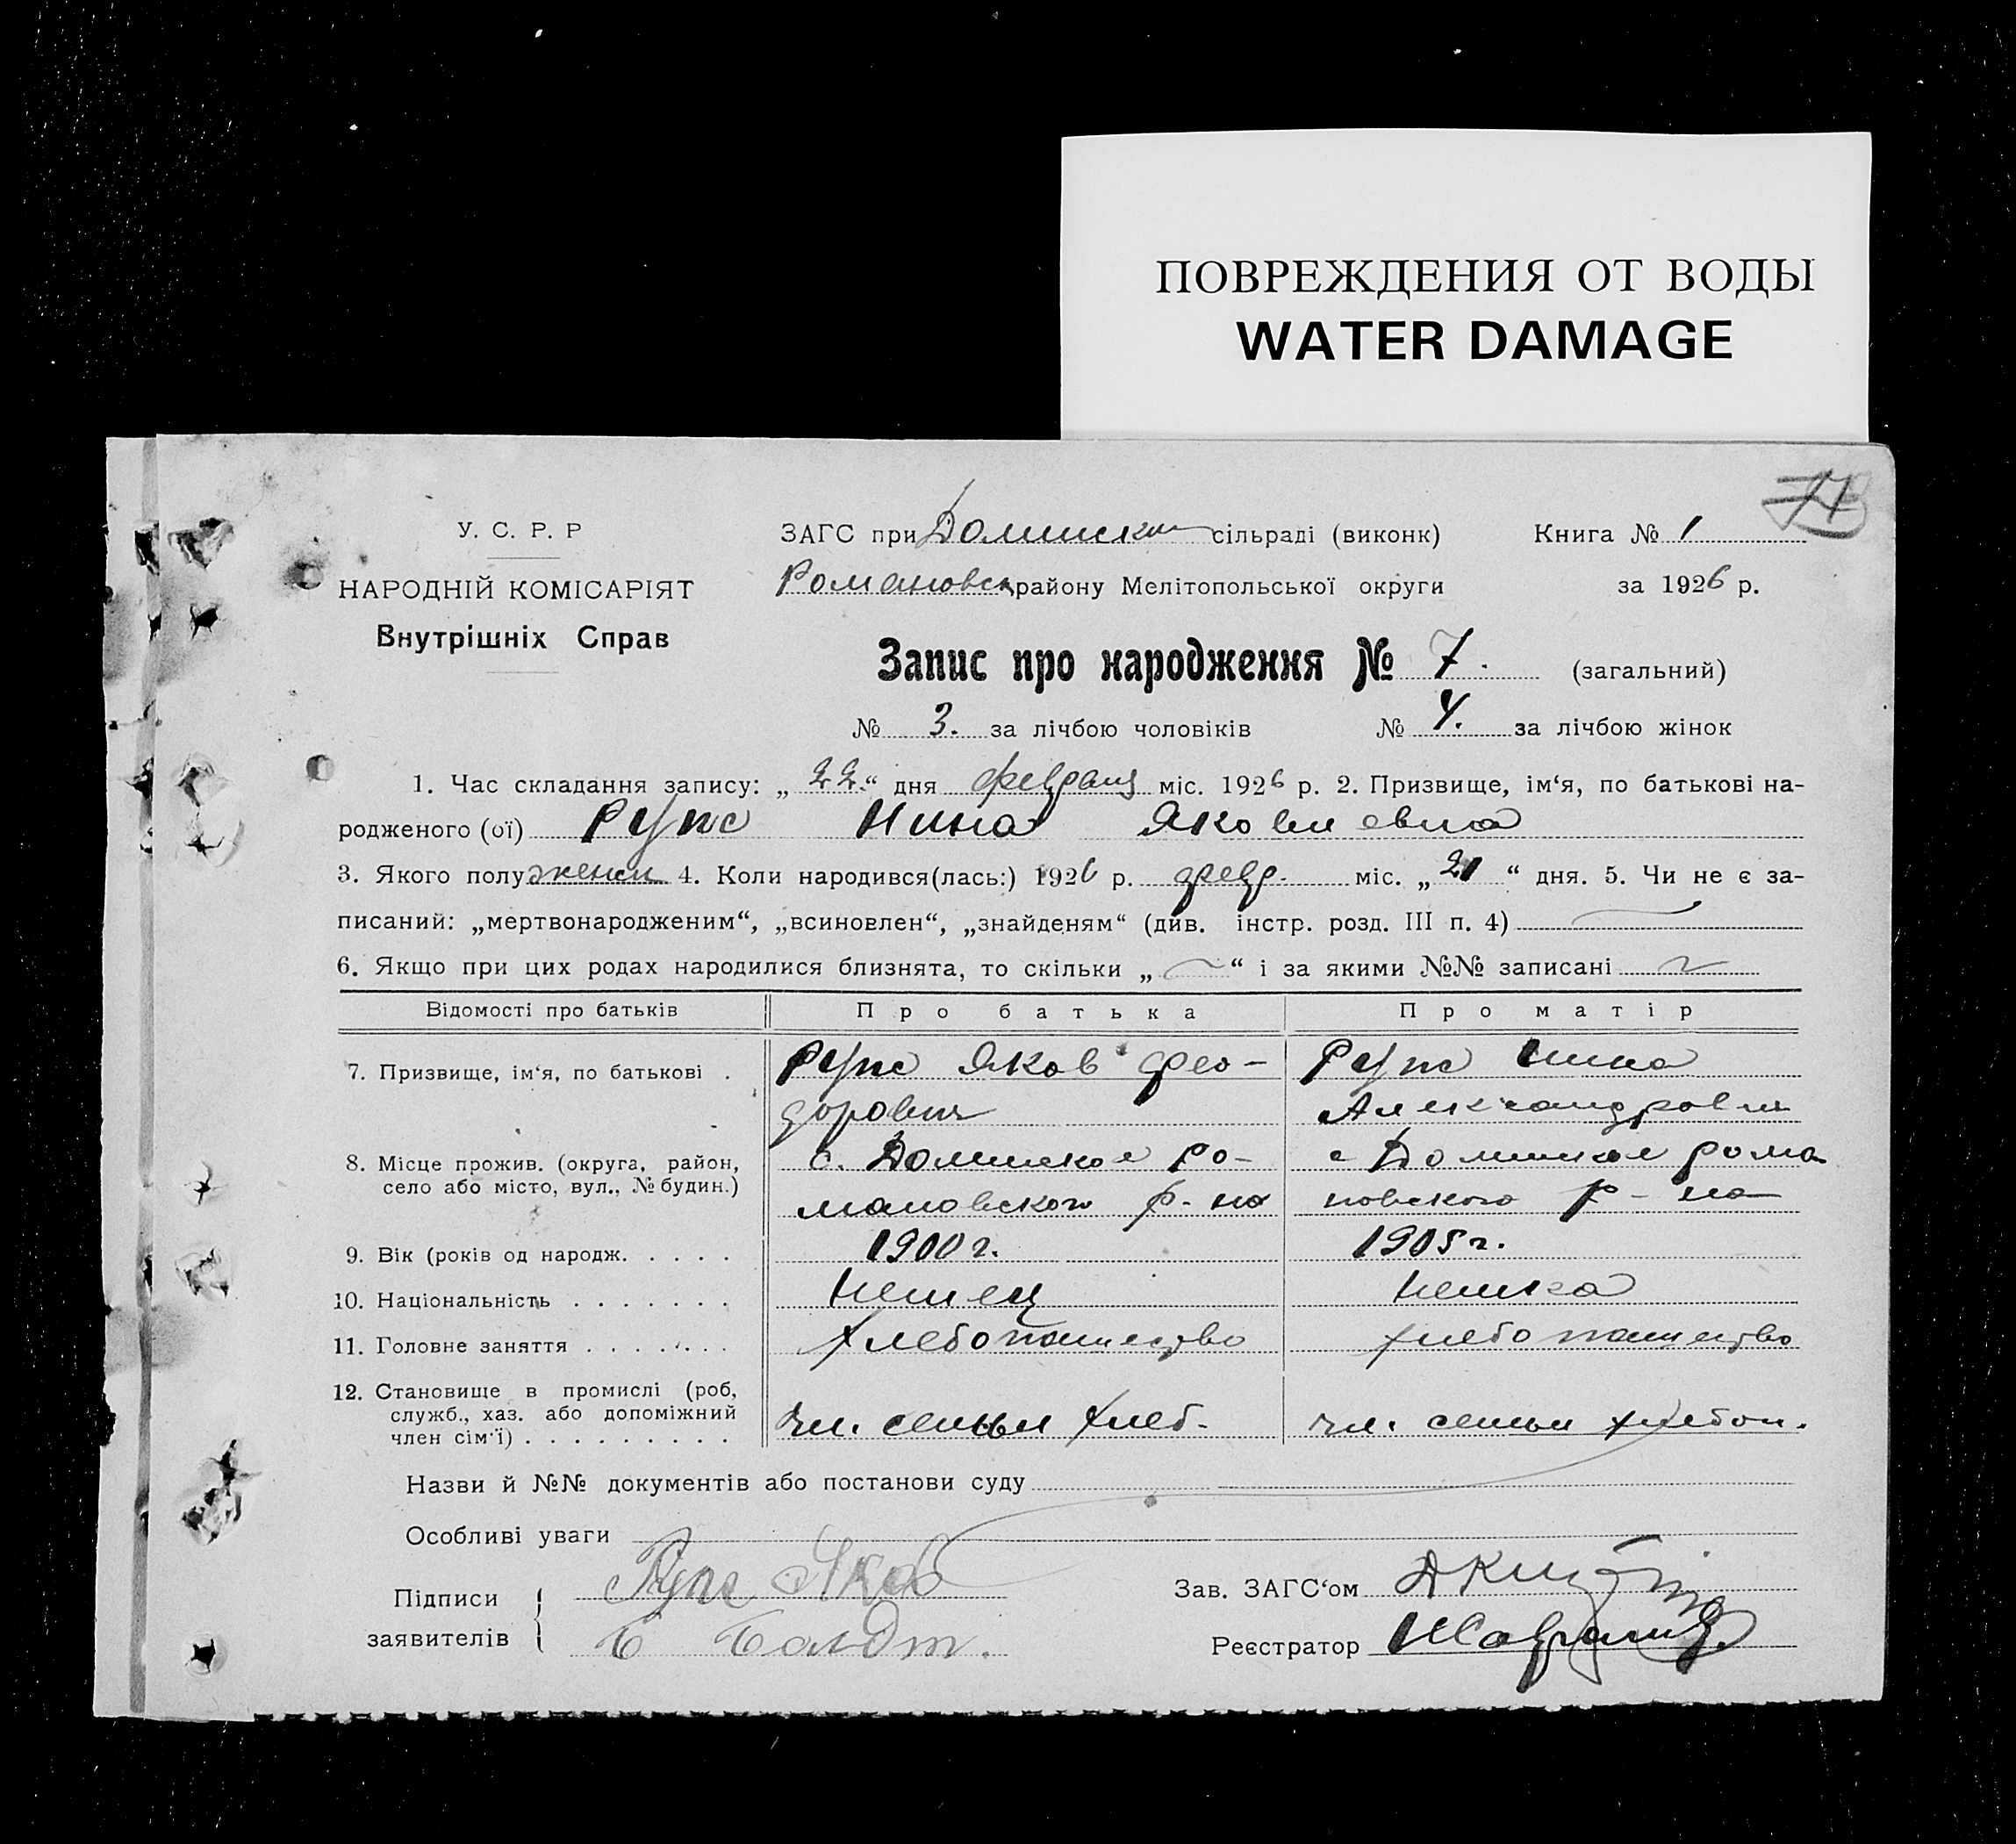 ПОВРЕЖДЕНИЯ ОТ ВОДЫ
WATER DAMAGE
У. С. Р. Р
ЗАГС при сільраді (виконк) Книга № 1
НАРОДНІЙ КОМІСАРІЯТ
Романовск району Мелітопольської округи за 1926 р.
Внутрішніх Справ
Запис про народження № 7. (загальний)
№ 3. за лічбою чоловіків № 4. за лічбою жінок
1. Час складання запису: „ 22 “ дня февраля міс. 1926 р. 2. Призвище, ім‘я, по батькові на-
родженого (ої) Рупс Нина Яковлевна
3. Якого полу женск 4. Коли народився(лась:) 1926 р. февр. міс. „ 21 “ дня. 5. Чи не є за-
писаний: „мертвонародженим“, „всиновлен“, „знайденям“ (див. інстр. розд. III п. 4)
6. Якщо при цих родах народилися близнята, то скільки „ “ і за якими №№ записані
Відомості про батьків Про батька Про матір
7. Призвище, ім‘я, по батькові . Рупс Яков Фео- Рупс Нина
дорович Александровна
8. Місце прожив. (округа, район, с. Долинское Ро- с Долинское Рома
село або місто, вул., № будин.) мановского р-на новского р-на
9. Вік (років од народж. . . . . 1900 г. 1905 г.
10. Національність . . . . . . . Немец Немка
11. Головне заняття . . . . . . . Хлебопашество хлебопашество
12. Становище в промислі (роб,
служб., хаз. або допоміжний чл. семьи хлеб. чл. семьи хлебоп.
член сім‘ї) . . . . . . . . .
Назви й №№ документів або постанови суду
Особливі уваги
Підписи Рупс Яков Зав. ЗАГС‘ом
заявителів Реєстратор